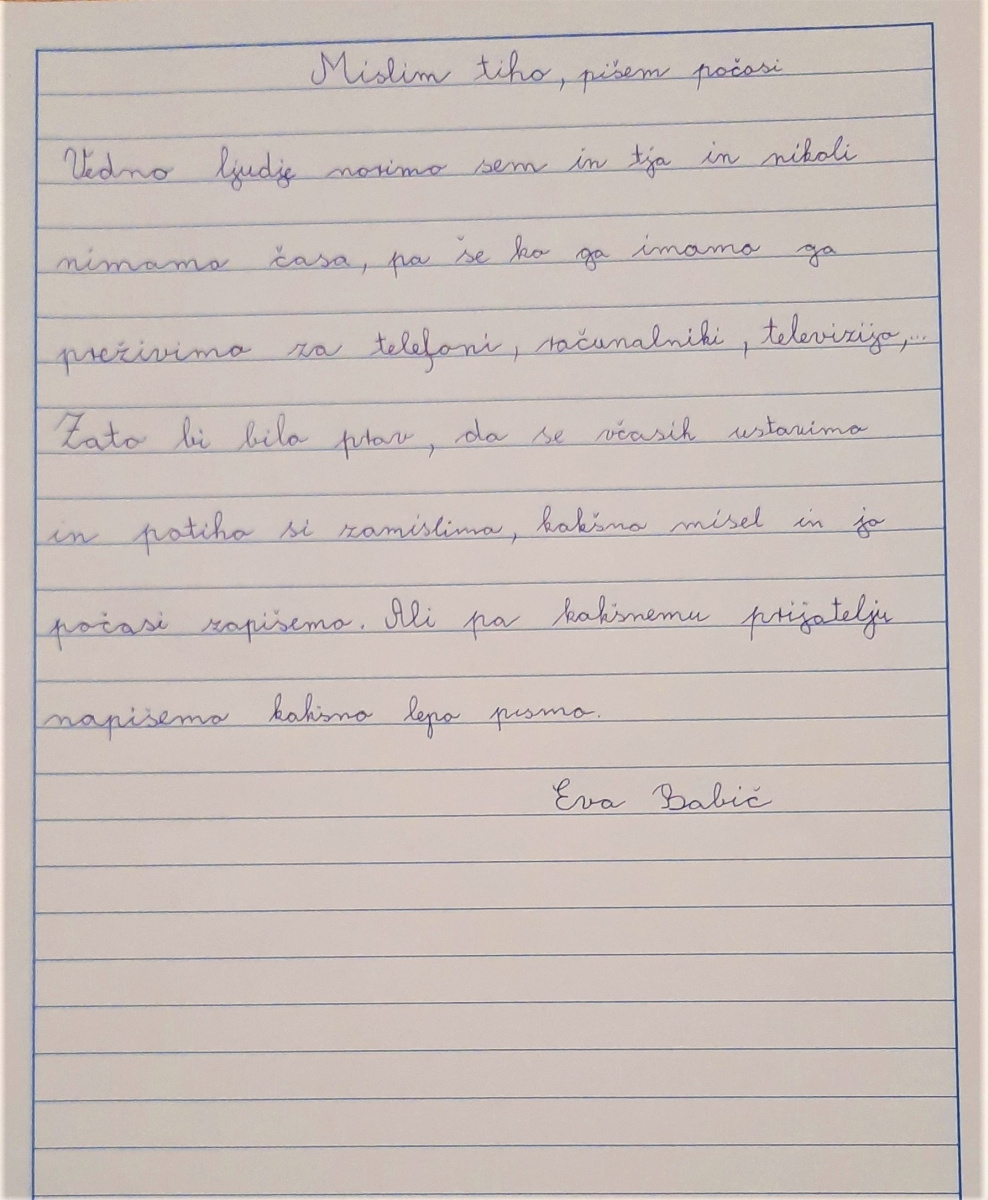 Mislim tiho, pišem počasi
Vedno ljudje norimo sem in tja in nikoli
nimamo časa, pa še ko ga imamo ga
preživimo za telefoni, računalniki, televizijo,...
Zato bi bilo prav, da se včasih ustavimo
in potiho si zamislimo, kakšno misel in jo
počasi zapišemo. Ali pa kakšnemu prijatelju
napišemo kakšno lepo pismo.
Eva Babič